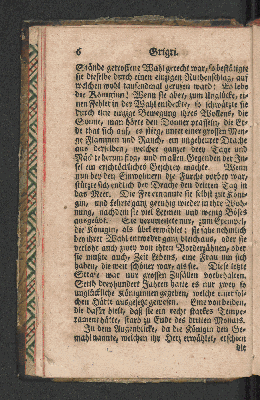 6 Grigri.
Stände getroffene Wahl gerecht war, so bestätigte
sie dieselbe durch einen einzigen Ruthenschlag, auf
welchen wohl tausendmal gerufen ward: Es lebe
die Königinn! Wenn sie aber, zum Unglücke, ei-
nen Fehler in der Wahl entdeckte, so schwärzte sie
durch eine einzige Bewegung ihres Wolkens, die
Sonne, man hörte den Donner prasseln, die Er-
de that sich auf, es stieg, unter einer großen Men-
ge Flammen und Rauch, ein ungeheurer Drache
aus derselben, welcher ganzer drey Tage und
Nächte herum flog, und in allen Gegenden der In-
sel ein erschreckliches Geschrey machte. Wenn
nun bey den Einwohnern die Furcht vorbey war,
stürzte sich endlich der Drache den dritten Tag in
das Meer. Die Fee ernannte sie selbst zur Köni-
ginn, und kehrte ganz geruhig wieder in ihre Woh-
nung, nachdem sie viel Lermen und wenig Böses
ausgeübt. Sie verurtheilte nur, zum Exempel,
die Königinn, als übel erwählet; sie sahe nehmlich
bey ihrer Wahl entweder ganz bleich aus, oder sie
verlohr auch zwey von ihren Vorderzähnen, oder
sie mußte auch, Zeit Lebens, eine Frau um sich
haben, die weit schöner war, als sie. Diese letzte
Strafe war mit großen Zufällen vorbehalten.
Seith dreyhundert Jahren hatte es nur zwey so
unglückliche Königinnen gegeben, welche einer sol-
chen Härte ausgesetzt gewesen. Eine von beiden,
die dafür hielt, daß sie ein recht starkes Tempe-
rament hätte, starb zu Ende des dritten Monats.
In dem Augenblicke, da die Königin den Ge-
mahl nannte, welchen ihr Herz erwählet, erschien
die